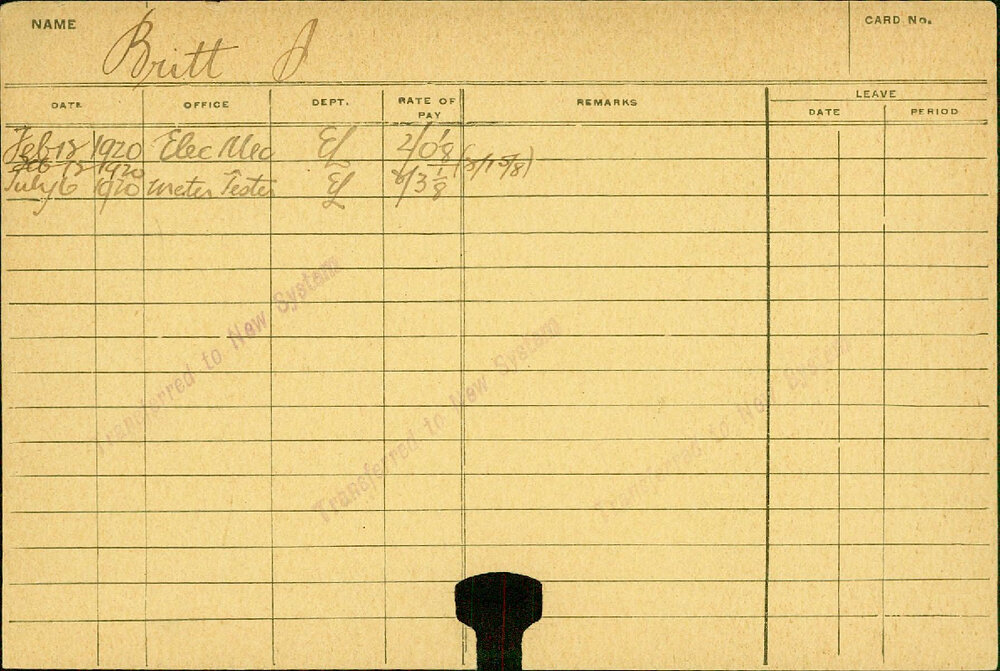 NAME
Britt J
CARD No.
DATE OFFICE DEPT. RATE OF PAY REMARKS LEAVE
DATE PERIOD
Feb 12 1920 Elec Mec El 2/0 1/8
Feb 12 1920 (2/1 5/8)
July 6 1920 Meter Tester El 2/3 1/8
Transferred to New System
Transferred to New System
Transferred to New System